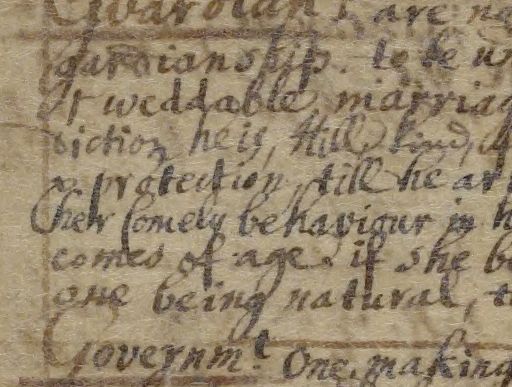 Guardian, are no
gardianship. to be un
If weddable marriag
diction he is, still kind, if
protection, till he ar
her comely behaviour in h
comes of age. if she be
one being natural, t
Governmt. One making